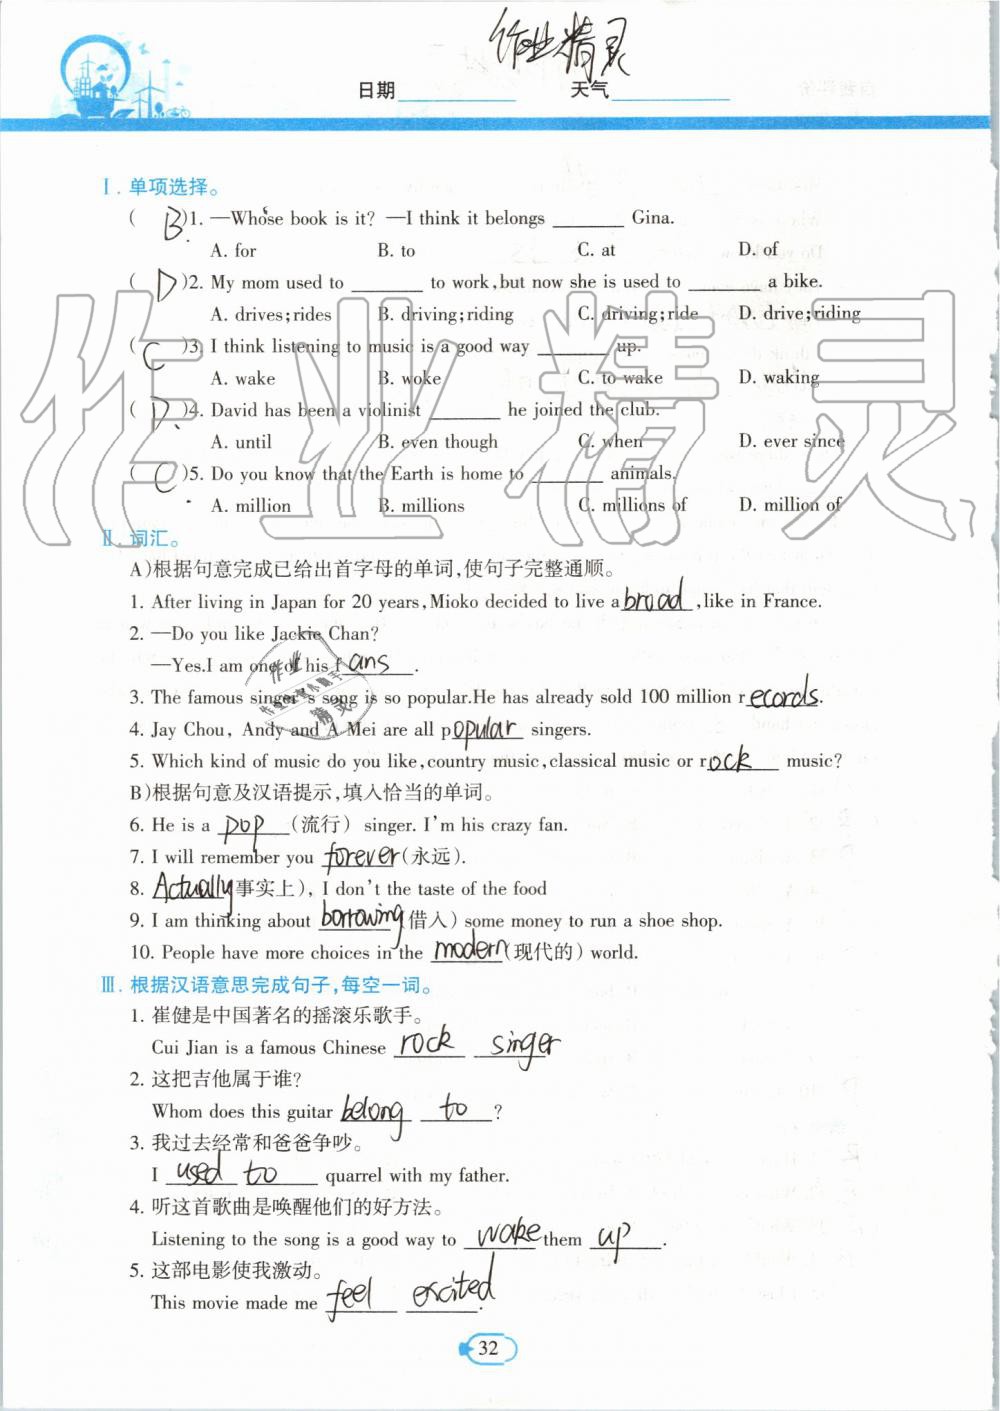 作业精灵
日期 天气
Ⅰ. 单项选择。
( B )1. —Whose book is it? —I think it belongs ________ Gina.
A. for B. to C. at D. of
( D )2. My mom used to ________ to work,but now she is used to ________ a bike.
A. drives;rides B. driving;riding C. driving;ride D. drive;riding
( C )3. I think listening to music is a good way ________ up.
A. wake B. woke C. to wake D. waking
( D )4. David has been a violinist ________ he joined the club.
A. until B. even though C. when D. ever since
( C )5. Do you know that the Earth is home to ________ animals.
A. million B. millions C. millions of D. million of
作业精灵
Ⅱ. 词汇。
A)根据句意完成已给出首字母的单词,使句子完整通顺。
1. After living in Japan for 20 years,Mioko decided to live abroad,like in France.
2. —Do you like Jackie Chan?
—Yes.I am one of his fans.
3. The famous singer's song is so popular.He has already sold 100 million records.
4. Jay Chou, Andy and A Mei are all popular singers.
5. Which kind of music do you like,country music,classical music or rock music?
B)根据句意及汉语提示,填入恰当的单词。
6. He is a pop(流行) singer. I'm his crazy fan.
7. I will remember you forever(永远).
8. Actually(事实上), I don't the taste of the food
9. I am thinking about borrowing(借入) some money to run a shoe shop.
10. People have more choices in the modern(现代的) world.
Ⅲ. 根据汉语意思完成句子,每空一词。
1. 崔健是中国著名的摇滚乐歌手。
Cui Jian is a famous Chinese rock singer
2. 这把吉他属于谁?
Whom does this guitar belong to?
3. 我过去经常和爸爸争吵。
I used to quarrel with my father.
4. 听这首歌曲是唤醒他们的好方法。
Listening to the song is a good way to wake them up.
5. 这部电影使我激动。
This movie made me feel excited.
32